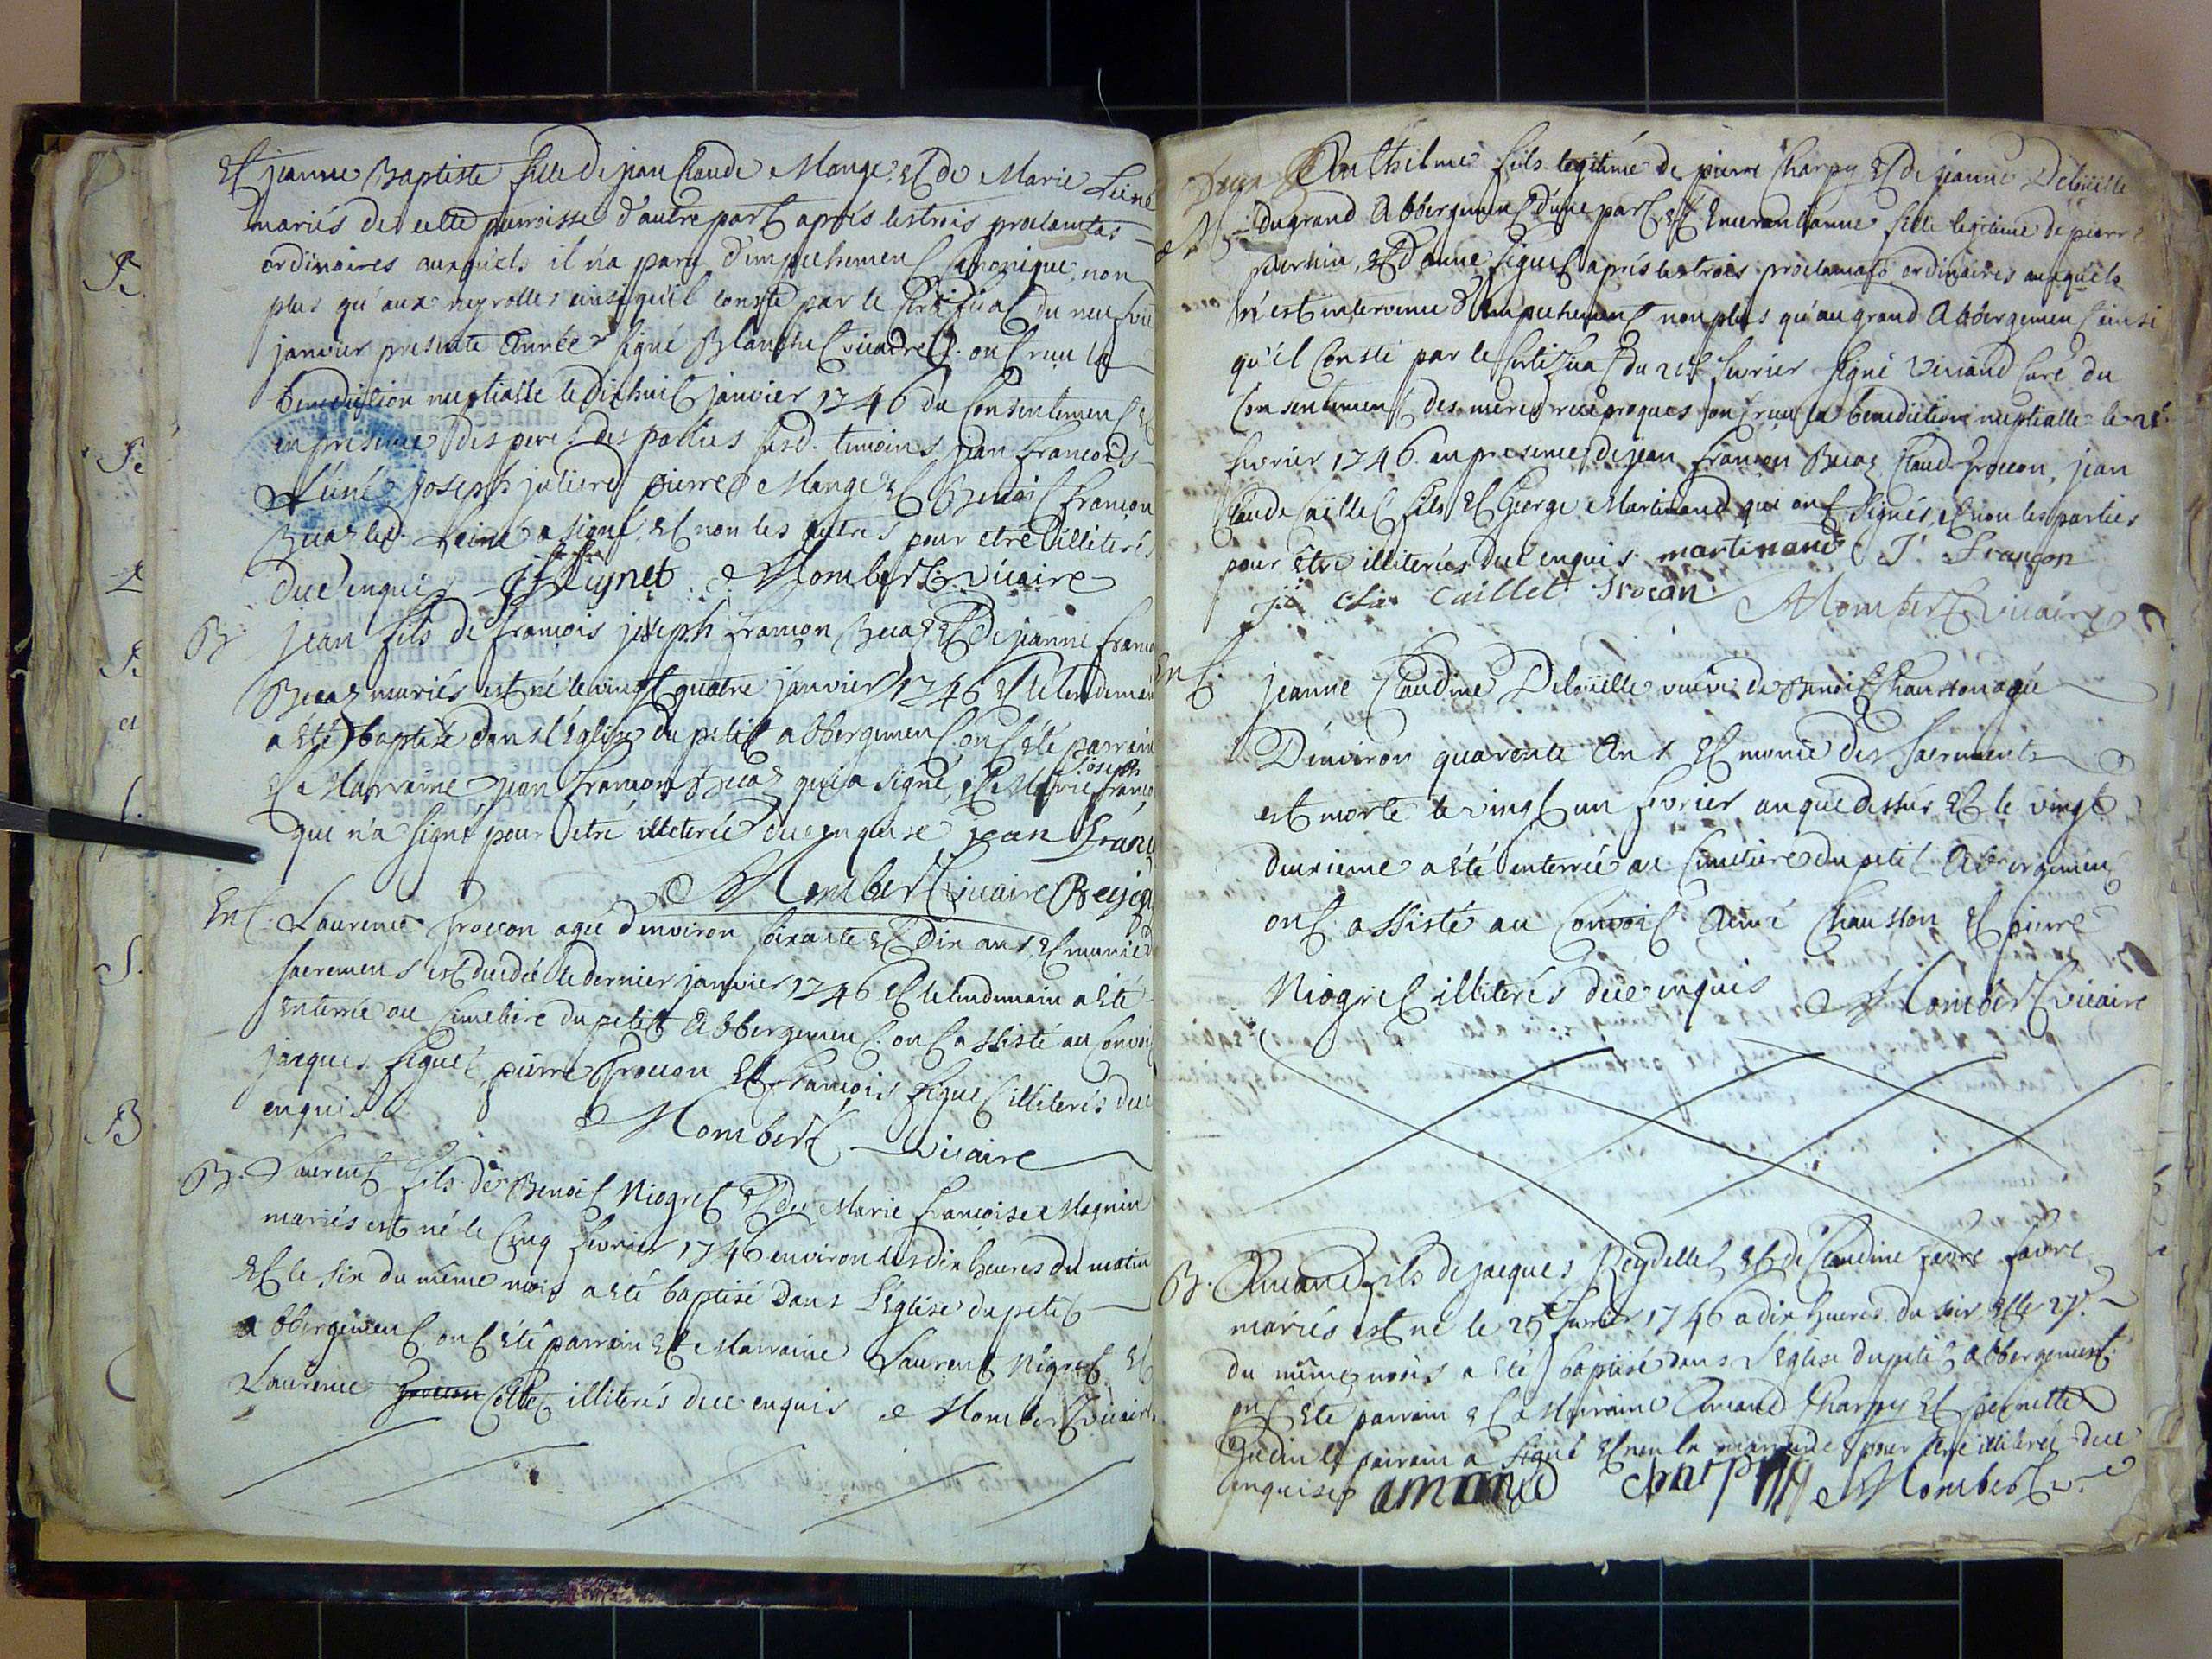 Et jeanne Baptiste fille de jean Claude Mange et de Marie Leine
mariés de cette parroisse d'autre part après les trois proclamãs
ordinoires auxquels il n'a paru d'empechement Canonique, non
plus qu'aux neyrolles ainsi qu'il conste par le Certificat du neufvie
janvier presente année signé Blanchet vicaire ont reçu la
benediction nuptialle le dix huit janvier 1746 du Consentement et
en presence des peres des parties susd. temoins jean François
Leiné joseph juliere pierre Mange et Benoit françon
Becaz led. Leine a signé et non les autres pour etre illiterés
duec enquis Leynet Mombert vicaire
B. jean fils de françois joseph françon Becaz et de jeanne franc
Becaz mariés est né le vingt quatre janvier 1746 et le lendemain
a été baptisé dans l'Église du petit abbergement. ont été parrain
et Marraine jean françon Becaz qui a signé, et Marie joseph franço
qui n'a signé pour etre illeterée duec enquise jean franç
Mombert vicaire
Ent. Laurence Frocon agée d'environ soixante et dix ans et munie d
sacremens est decedée le dernier janvier 1746 et le lendemain a été
enterrée au Cimetiere du petit Abbergement. ont assisté au convoi
jacques Figuet, pierre Frocon et françois Figuet illiterés duec
enquis Mombert vicaire
B. Laurent fils de Benoit Niogret et de Marie françoise Magnin
mariés est né le Cinq fevrier 1746 environ les dix heures du matin
et le six du même mois a été baptisé dans L'Eglise du petit
abbergement ont été parrain et Marraine Laurent Niogret et
Laurence Frocon Collet illiterés duec enquis Mombert vicaire
Anthelme fils legitime de pierre Charpy et de jeanne Deloüille
M. du grand Abbergement d'une part, et Emerantianne fille legitime de pierre
et d'anne Figuet après les trois proclamãs ordinaires auxquels
n'est intervenu d'empechement non plus qu'au grand Abbergement ainsi
qu'il conste par le Certificat du 21e fevrier signé Curé du
Consentement des meres reciproques ont reçu la benediction nuptialle le
fevrier 1746. en presence de jean françon Becaz Claude Frocon, jean
Claude Caillet fils et George Martinand qui ont signés, et non les parties
pour être illiterés duec enquis martinand J. Françon
Caillet Frocon Mombert vicaire
Ent. jeanne Claudine Deloüille veuve de Benoit Chauston agée
D'environ quarente ans et munie des sacrements
est morte le vingt un fevrier an que dessus et le vingt
deuxieme a été enterrée au Cimetiere du petit Abbergement
ont assisté au Convoi Aimé Chauston et pierre
Niogret illiterés duec enquis Mombert vicaire
B. Amand fils de jacques Reydellet et de Claudine favre favre
mariés est né le 25e fevrier 1746 a dix heures du soir et le 27e
du même mois a été baptisé dans L'Eglise du petit Abbergement
ont été parrain et Marraine Amand Charpy et pernette
Gudin le parrain a signé et non la marraine pour être illiterée duec
enquise amand charpy Mombert v.